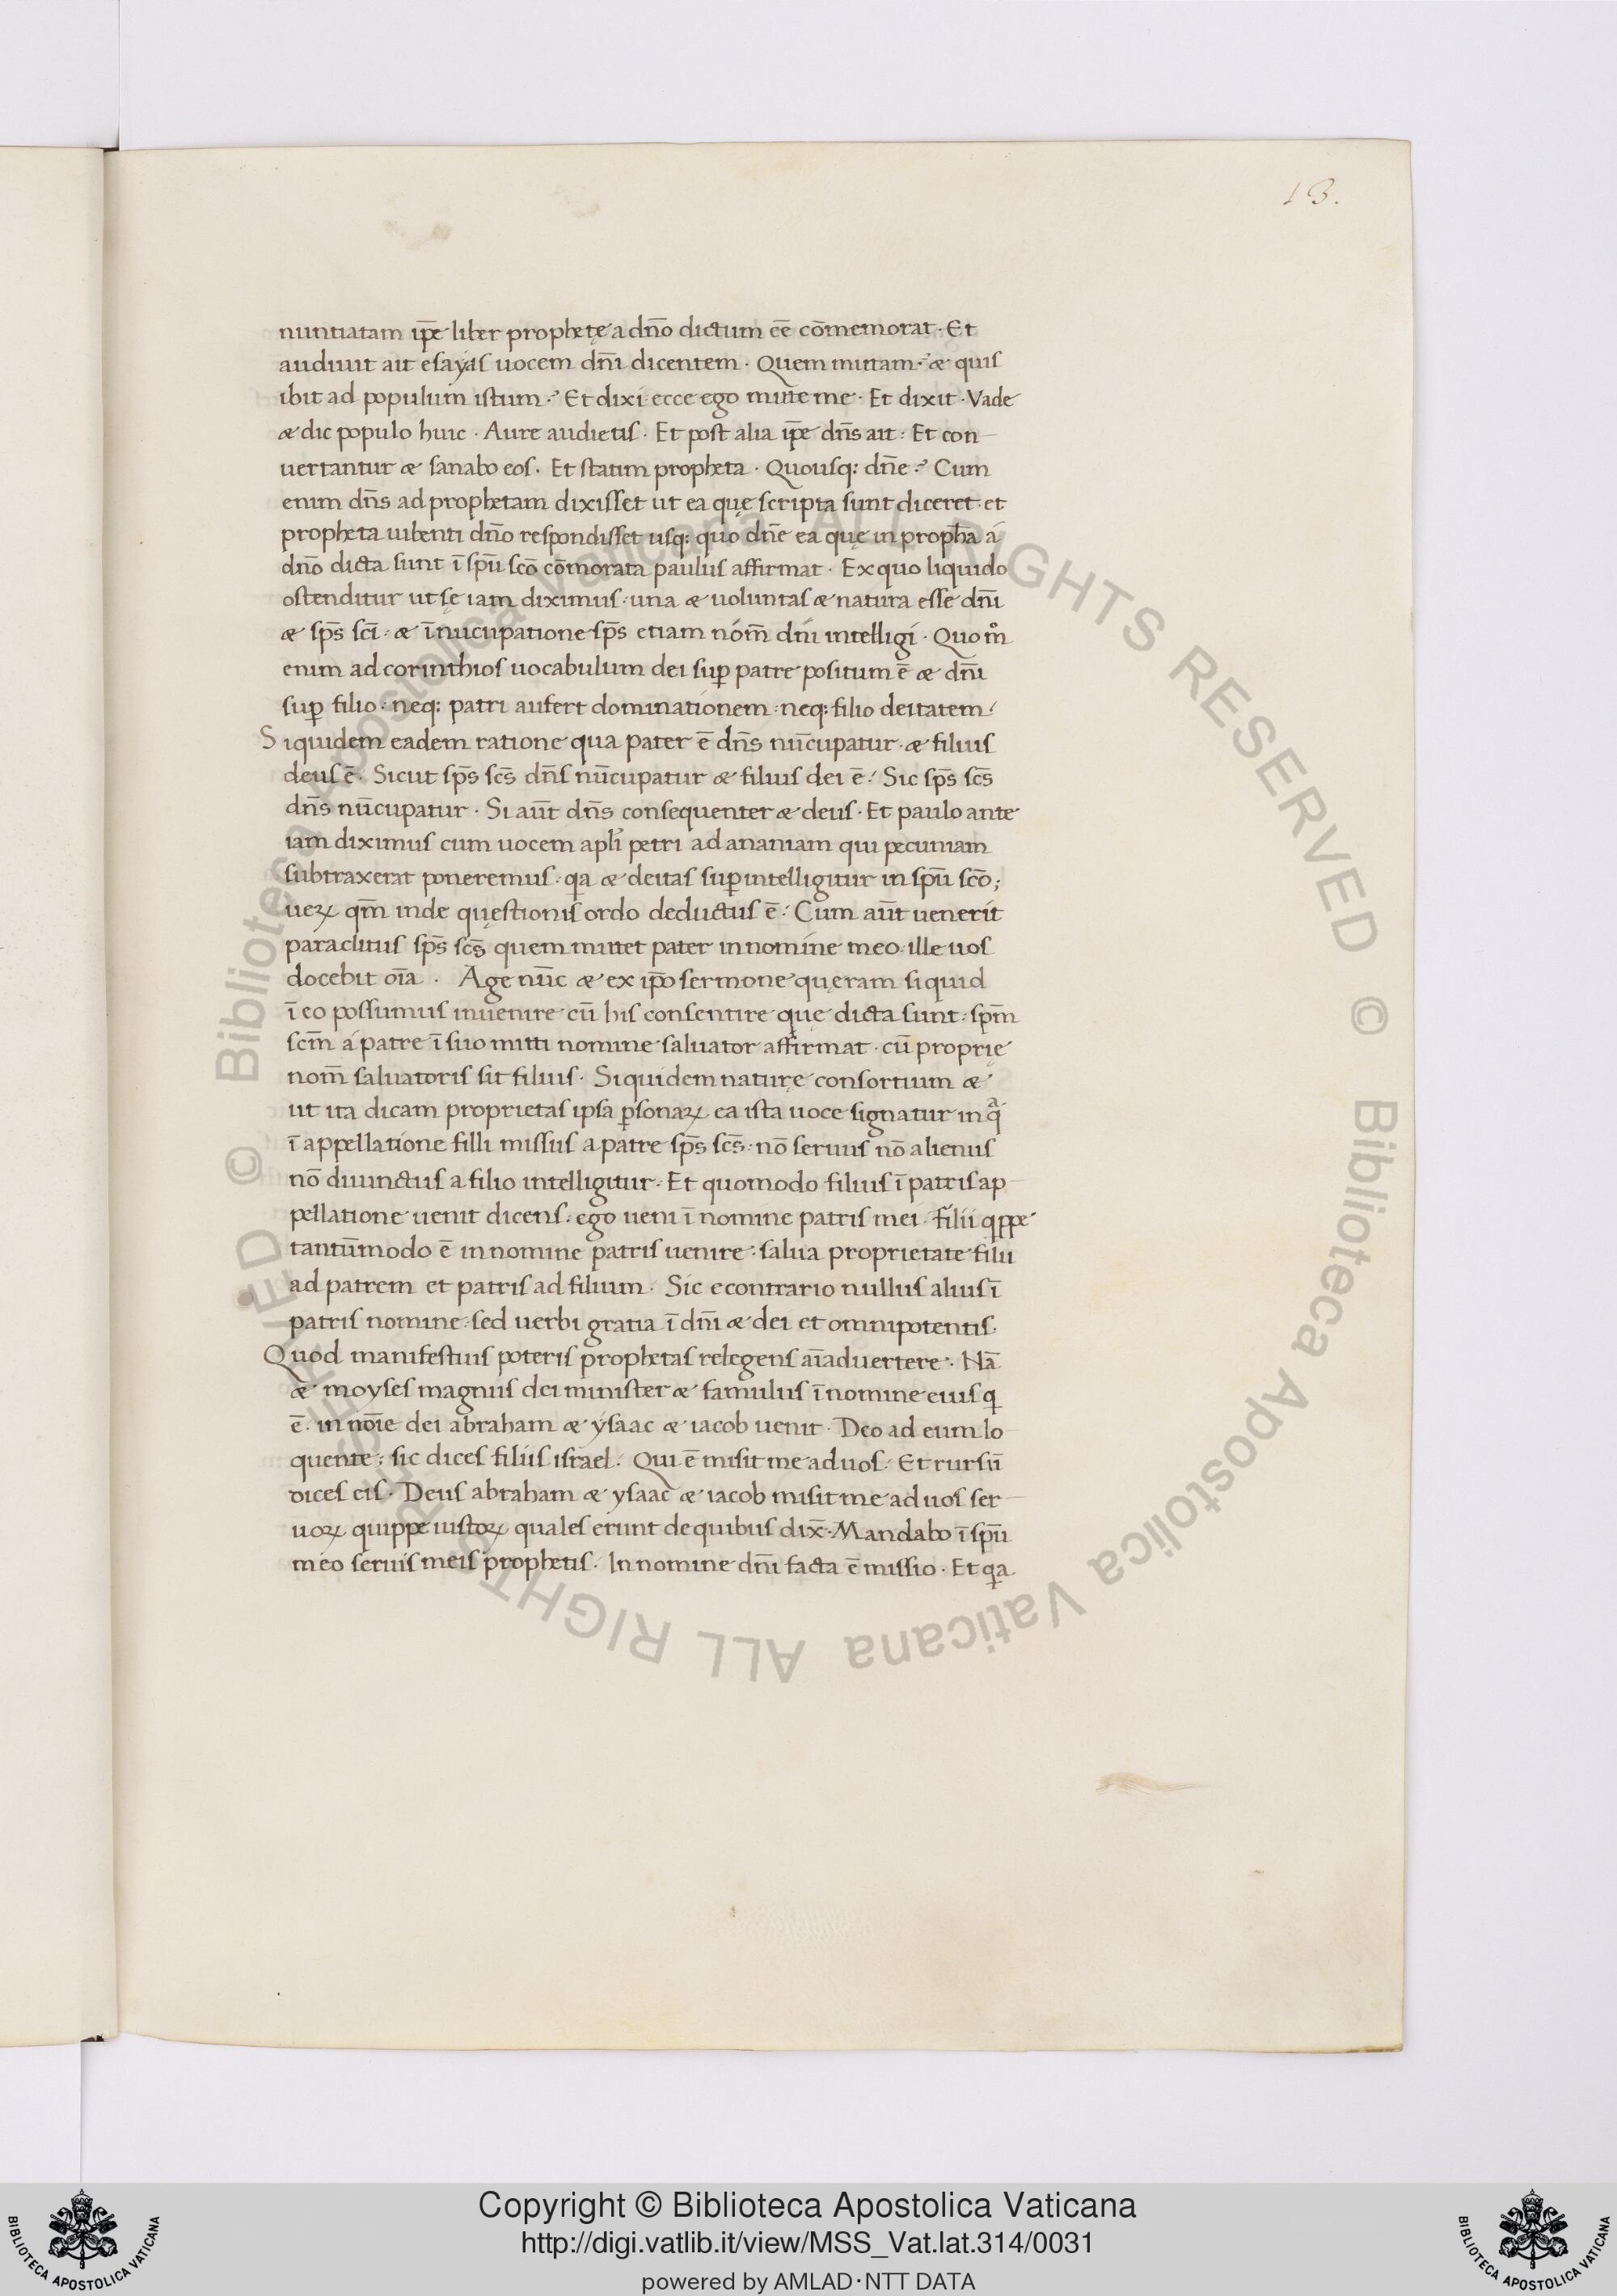 13.
nuntiatam ip̄e liber prophetę a dn̄o dictum ēe cōmemorat · Et
audiuit ait esayas uocem dn̄i dicentem · Quem mittam ·? æ quis
ibit ad populum istum ·? Et dixi ecce ego mitte me · Et dixit · Vade
æ dic populo huic · Aure audietis · Et post alia ip̄e dn̄s ait : Et con
uertantur æ sanabo eos · Et statim propheta · Quousq: dn̄e ·? Cum
enim dn̄s ad prophetam dixisset ut ea quę scripta sunt diceret · et
propheta uibenti dn̄o respondisset usq: quo dn̄e ea quę in proph̄a á
dn̄o dicta sunt ī spū scō cōmorata paulus affirmat · Ex quo liquido
ostenditur ut sę iam diximus · una æ uoluntas æ natura esse dn̄i
æ sp̄s sc̄i · æ īnucupatione sp̄s etiam nóm̄ dn̄i intelligi · Quom̊
enim ad corinthios uocabulum dei suꝑ patre positum ē æ dn̄i
suꝑ filio : neq: patri aufert dominationem : neq: filio deitatem /
Siquidem eadem ratione qua pater ē dn̄s nūcupatur · æ filius
deus ē · Sicut sp̄s sc̄s dn̄s nūcupatur æ filius dei ē / Sic sp̄s sc̄s
dn̄s nūcupatur · Si aūt dn̄s consequenter æ deus · Et paulo ante
iam diximus cum uocem apl̄i petri ad ananiam qui pecuniam
subtraxerat poneremus · qa æ deitas suꝑintelligitur in spū scō ;
ueꝝ qm̄ inde quęstionis ordo deductus ē / Cum aūt uenerit
paraclitus sp̄s sc̄s quem mittet pater in nomine meo · ille uos
docebit oīa · Age nūc æ ex ip̄o sermone quęram si quid
ī eo possumus inuenire cū his consentire quę dicta sunt : sp̄m
sc̄m á patre ī suo mitti nomine saluator affirmat · cū proprię
nom̄ saluatoris sit filius · Siquidem naturę consortium æ
ut ita dicam proprietas ipsa ꝑsonaꝝ ea ista uoce signatur in qᵃ
ī appellatione filli missus a patre sp̄s sc̄s · nō seruus nō alienus
nō diuunctus a filio intelligitur · Et quomodo filius ī patris ap
pellatione uenit dicens : ego ueni ī nomine patris mei · filii qppe
tantūmodo ē in nomine patris uenire : salua proprietate filii
ad patrem et patris ad filium · Sic econtrario nullus alius ī
patris nomine : sed uerbi gratia ī dn̄i æ dei et omnipotentis ·
Quod manifestius poteris prophetas relegens aīaduertere · Nā
æ moyses magnus dei minister æ famulus ī nomine eius q
ē · in noīe dei abraham æ ysaac æ iacob uenit · Deo ad eum lo
quente : sic dices filiis israel · Qui ē misit me ad uos · Et rursū
dices eis · Deus abraham æ ysaac æ iacob misit me ad uos ser
uoꝝ quippe iustoꝝ quales erunt de quibus dix̄ · Mandabo ī spū
meo seruis meis prophetis · In nomine dn̄i facta ē missio · Et qa
© Biblioteca Apostolica Vaticana ALL RIGHTS RESERVED © Biblioteca Apostolica Vaticana ALL RIGHTS RESERVED
BIBLIOTECA APOSTOLICA VATICANA
Copyright © Biblioteca Apostolica Vaticana
http://digi.vatlib.it/view/MSS_Vat.lat.314/0031
powered by AMLAD·NTT DATA
BIBLIOTECA APOSTOLICA VATICANA